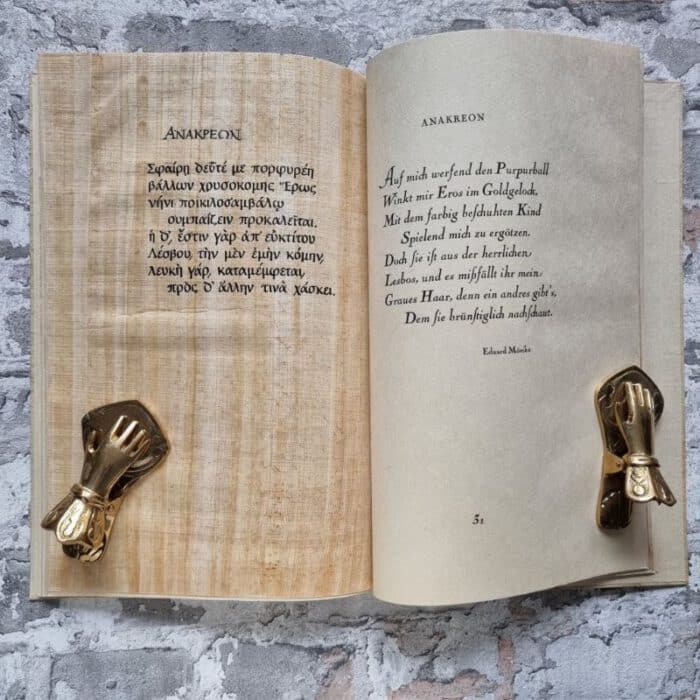 ΑΝΑΚΡΕΩΝ
Σφαίρῃ δεῦτέ με πορφυρέῃ
βάλλων χρυσοκομης Ἔρως
νήνι ποικιλοσαμβάλῳ
συμπαίζειν προκαλεῖται.
ἡ δ', ἔστιν γὰρ ἀπ' εὐκτίτου
Λέσβου, τὴν μὲν ἐμὴν κόμην,
λευκὴ γάρ, καταμέμφεται,
πρὸς δ' ἄλλην τινὰ χάσκει.
ANAKREON
Auf mich werfend den Purpurball
Winkt mir Eros im Goldgelock,
Mit dem farbig beſchuhten Kind
Spielend mich zu ergötzen.
Doch ſie iſt aus der herrlichen
Lesbos, und es mißfällt ihr mein
Graues Haar, denn ein andres gibt's,
Dem ſie brünſtiglich nachſchaut.
Eduard Mörike
51